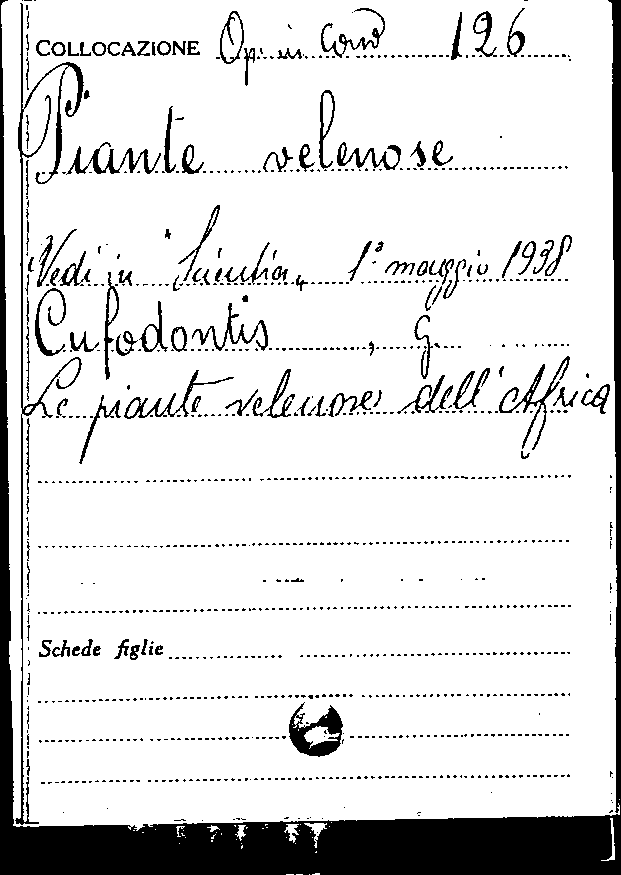 COLLOCAZIONE Op. in Corso 126
Piante velenose
Vedi in "Scientia" 1° maggio 1938
Cufodontis, G.
Le piante velenose dell'Africa
Schede figlie